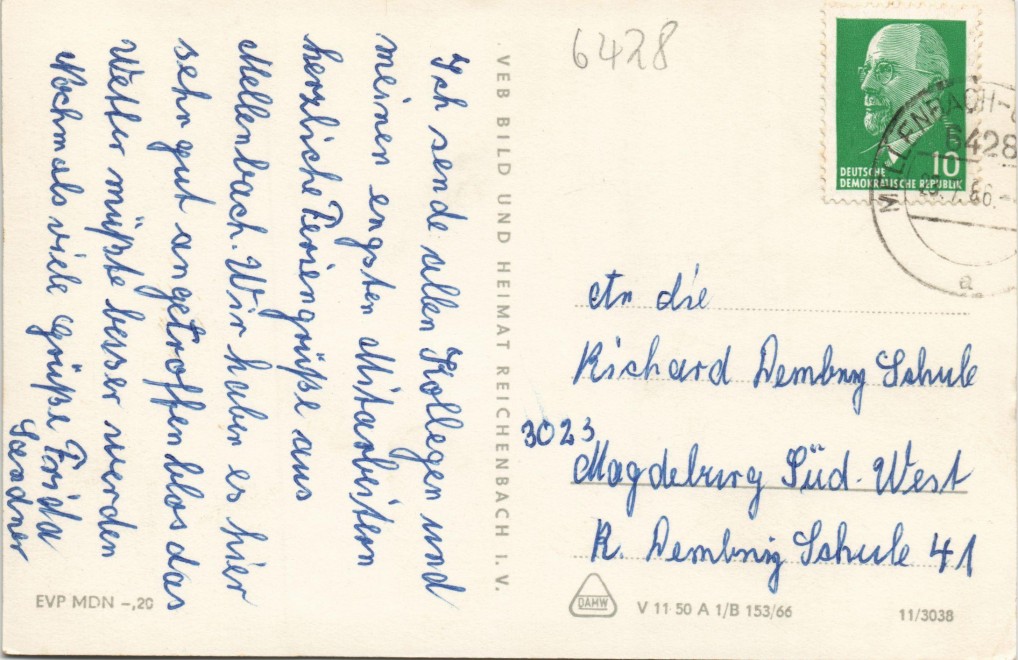 Ich sende allen Kollegen und
meinen engsten Mitarbeitern
herzliche Feriengrüße aus
Mellenbach. Wir haben es hier
sehr gut angetroffen blos das
Wetter müßte besser werden
Nochmals viele Grüße Frida
Sandner
VEB BILD UND HEIMAT REICHENBACH I. V.
6428
DEUTSCHE
DEMOKRATISCHE REPUBLIK
10
MELLENBACH-
6428
.7.66.-
a
An die
Richard Dembny Schule
3023
Magdeburg Süd-West
R. Dembny Schule 41
EVP MDN -,20
DAMW
V 11 50 A 1/B 153/66
11/3038